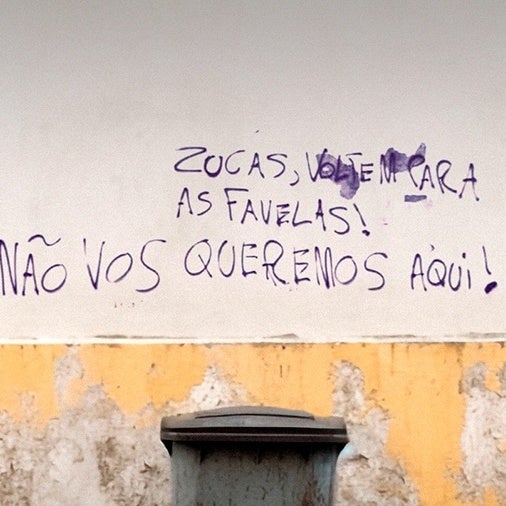 ZUCAS, VOLTEM PARA
AS FAVELAS!
NÃO VOS QUEREMOS AQUI!